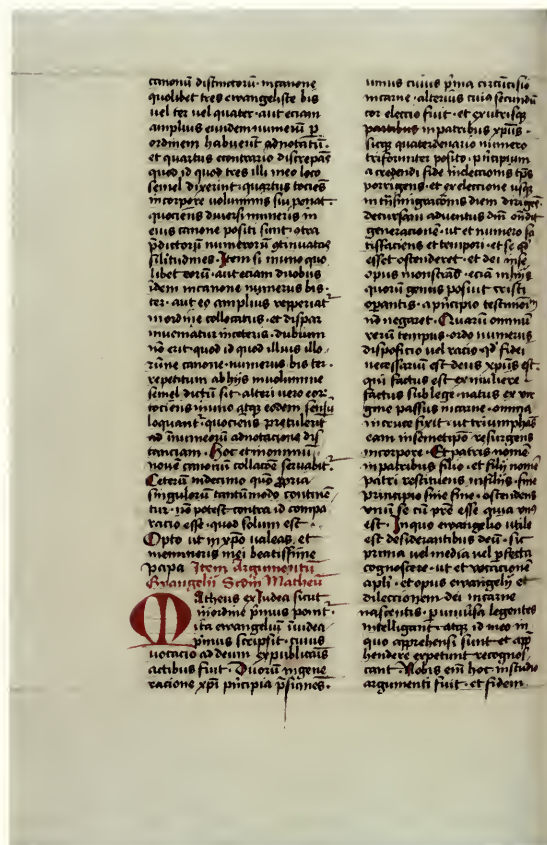 canonū distinctorū · in canone
quolibet tres ewangeliste bis
uel ter uel quater · aut eciam
amplius eundem numerū ꝑ
ordinem habuerīt adnotatū ·
et quartus econtrario discrepās
quod id quod tres illi in eo loco
semel dixerint · quartus tociēs
in corpore voluminis sui ponat ·
quociens diuersi numeris in
eius canone positi sunt · cōtra
p̄dictorū numerorū cōtinuatas
silitudines · Item si in uno quo
libet eorū · aut eciam duobus
idem in canone numerus bis ·
ter · aut eo amplius repperiat
in ordine collocatus · et dispar
inueniatur in ceteris · dubium
nō erit · quod id quod illius illo
rūue canone · numerus bis ter ·
repetitum ab hijs in volumine
semel dictū sit · alteri vero eor
tociens in uno atqꝫ eodem sensu
loquant · quociens pretulerit
ad inuicem adnotacione dis
tanciam · Hoc et in omni
noue canonū collacōe seruabit
Ceterū in decimo quō ꝓpria
singulorū tantūmodo contine
tur · nō potest contra id compa
racio esse · quod solum est ·
Opto vt in xp̄o valeas et
memineris mei beatissime
papa Item Argumentū
Ewangelii Scdm Matheū
Matheus ex Iudea sicut
in ordine p̄mus ponit
ita ewangeliū in iudea
p̄mus scripsit · cuius
uocacio ad deum ex publicanis
actibus fuit · Duorū in gene
racione xp̄i p̄ncipia p̄sumēs ·
unius cuius p̄ma circūcisio
in carne · alterius cui9 secundū
cor electio fuit · et ex utrisqꝫ
partibus in patribus xp̄us ·
sicqꝫ quaternario numero
triformiter posito · p̄ncipium
a credendi fide in eleccionis tp̄s
porrigens · et ex eleccione usqꝫ
in tn̄smigracōnis diem dirigēs
decursam aduentus dn̄i ondit
generacionē · ut et numero sa
tisfaciens et tempori · et se qd
esset ostenderet · et dei in se
opus monstrās · eciā in hijs
quorū genus posuit cristi
operantis · a p̄ncipio testimoīm
nō negaret · Quarū omniū
rerū tempus · ordo numerus
disposicio uel racio qd fidei
necessariū est · deus xp̄us est ·
qui factus est ex muliere
factus sub lege · natus ex vir
gine passus in carne · omnia
in cruce fixit · ut triumphās
eam in semetip̄o resurgens
in corpore · Et patris nomē
in patribus filio · et filij nomē
patri restituens in filiis · sine
principio sine fine · ostendens
vnū se cū p̄re esse quia vn9
est · In quo ewangelio utile
est desiderantibus deū · sic
prima uel media uel p̄fecta
cognoscere · ut et vocacionē
apl̄i · et opus ewangelij et
dileccionem dei in carne
nascentis · p̄ uniu̅sa legentes
intelligant · atqꝫ id in eo in
quo apprehensi sunt · et app
hendere expetunt recognos
cant · Nobis em̄ hoc in studio
argumenti fuit · et fidem